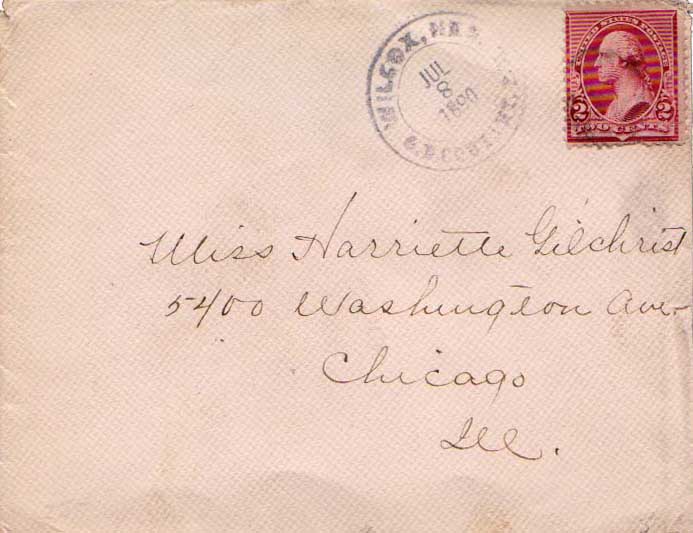 WILCOX,
JUL
8
UNITED STATES POSTAGE
2 2
TWO CENTS
Miss Harriette Gilchrist
5400 Washington Ave.
Chicago
Ill.